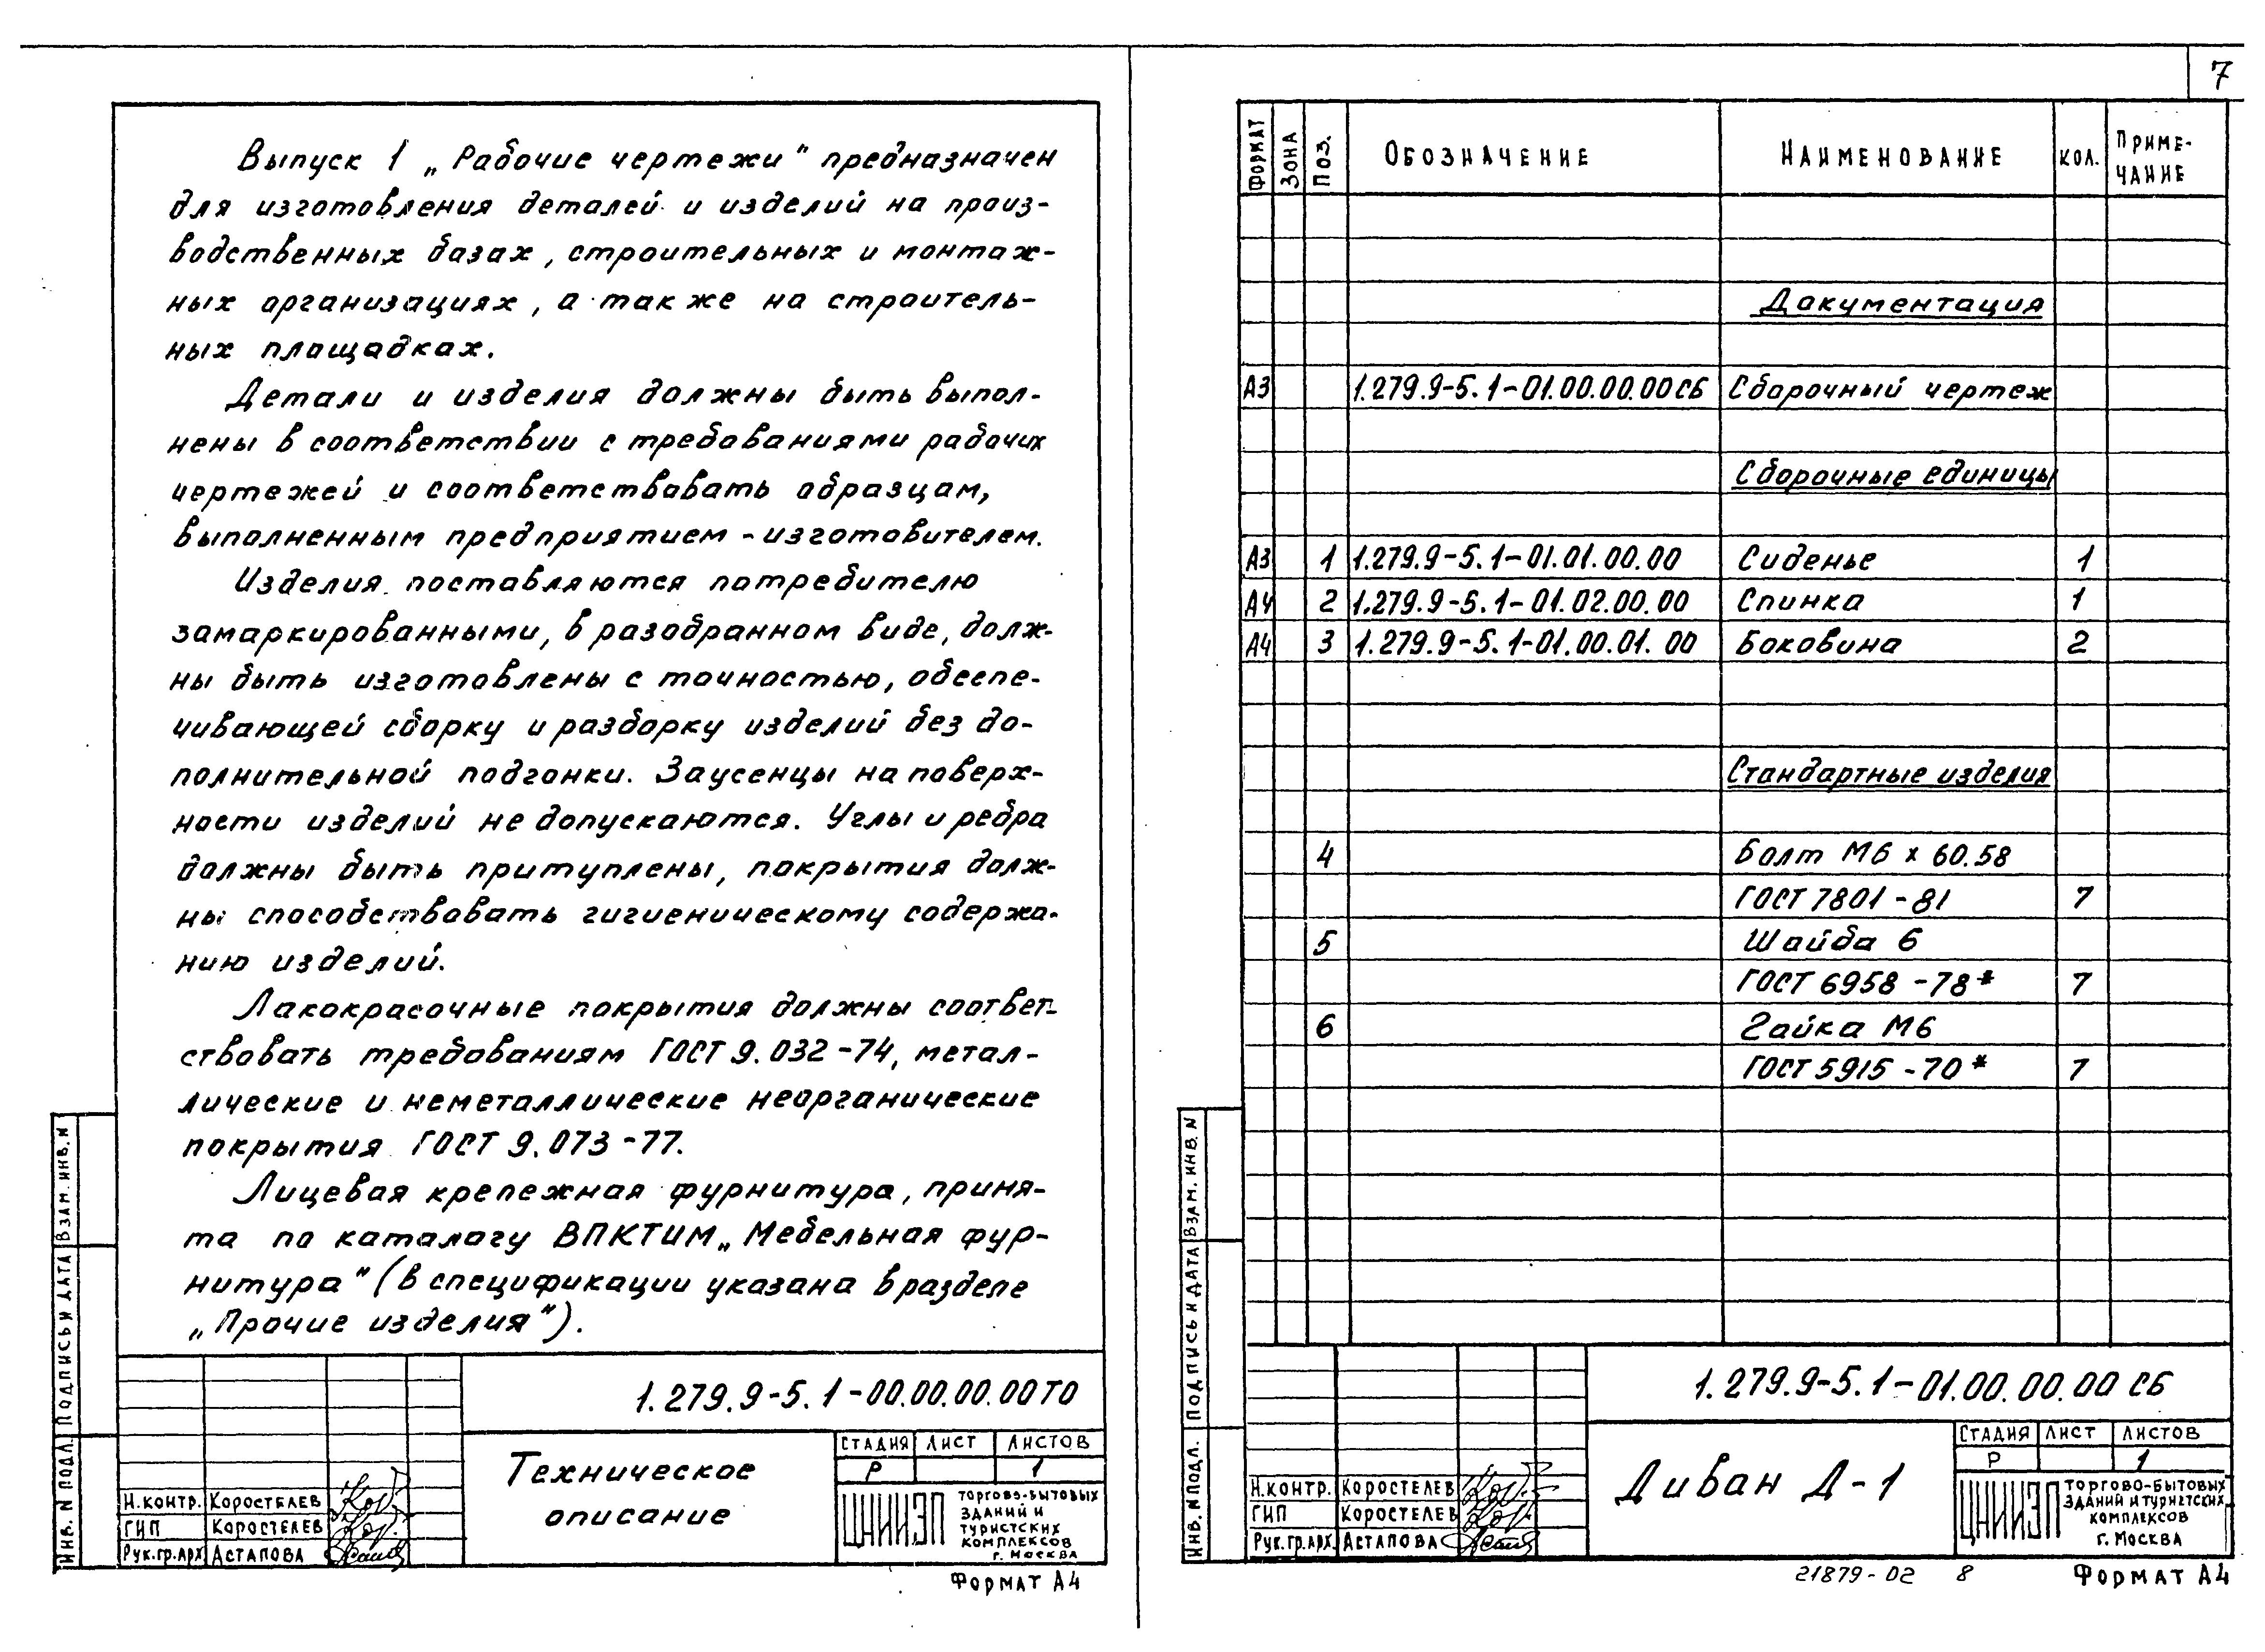 Выпуск 1 „Рабочие чертежи" предназначен
для изготовления деталей и изделий на произ-
водственных базах, строительных и монтаж-
ных организациях, а также на строитель-
ных площадках.
Детали и изделия должны быть выпол-
нены в соответствии с требованиями рабочих
чертежей и соответствовать образцам,
выполненным предприятием-изготовителем.
Изделия поставляются потребителю
замаркированными, в разобранном виде, долж-
ны быть изготовлены с точностью, обеспе-
чивающей сборку и разборку изделий без до-
полнительной подгонки. Заусенцы на поверх-
ности изделий не допускаются. Углы и ребра
должны быть притуплены, покрытия долж-
ны способствовать гигиеническому содержа-
нию изделий.
Лакокрасочные покрытия должны соответ-
ствовать требованиям ГОСТ 9.032-74, метал-
лические и неметаллические неорганические
покрытия ГОСТ 9.073-77.
Лицевая крепежная фурнитура, приня-
та по каталогу ВПКТИМ „Мебельная фур-
нитура" (в спецификации указана в разделе
„Прочие изделия").
ВЗАМ. ИНВ. N
ПОДПИСЬ И ДАТА
ИНВ. N ПОДЛ.
1.279.9-5.1-00.00.00.00ТО
Техническое
описание
СТАДИЯ ЛИСТ ЛИСТОВ
Р 1
Н.КОНТР. КОРОСТЕЛЕВ
ГИП КОРОСТЕЛЕВ
РУК.ГР.АРХ АСТАПОВА
ЦНИИЭП
ТОРГОВО-БЫТОВЫХ
ЗДАНИЙ И
ТУРИСТСКИХ
КОМПЛЕКСОВ
Г. МОСКВА
ФОРМАТ А4
7
ФОРМАТ ЗОНА ПОЗ. ОБОЗНАЧЕНИЕ НАИМЕНОВАНИЕ КОЛ. ПРИМЕ-
ЧАНИЕ
Документация
А3 1.279.9-5.1-01.00.00.00СБ Сборочный чертеж
Сборочные единицы
А3 1 1.279.9-5.1-01.01.00.00 Сиденье 1
А4 2 1.279.9-5.1-01.02.00.00 Спинка 1
А4 3 1.279.9-5.1-01.00.01.00 Боковина 2
Стандартные изделия
4 Болт М6 х 60.58
ГОСТ 7801-81 7
5 Шайба 6
ГОСТ 6958-78* 7
6 Гайка М6
ГОСТ 5915-70* 7
ВЗАМ. ИНВ. N
ПОДПИСЬ И ДАТА
ИНВ. N ПОДЛ.
1.279.9-5.1-01.00.00.00 СБ
Диван Д-1
СТАДИЯ ЛИСТ ЛИСТОВ
Р 1
Н.КОНТР. КОРОСТЕЛЕВ
ГИП КОРОСТЕЛЕВ
РУК.ГР.АРХ. АСТАПОВА
ЦНИИЭП
ТОРГОВО-БЫТОВЫХ
ЗДАНИЙ И ТУРИСТСКИХ
КОМПЛЕКСОВ
Г. МОСКВА
21879-02 8 ФОРМАТ А4